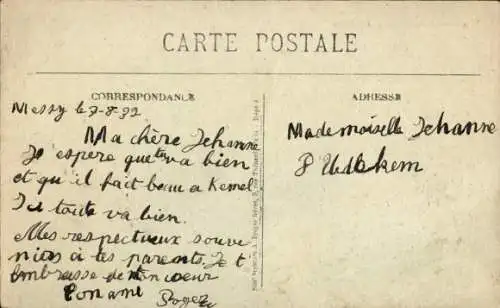 CARTE POSTALE
CORRESPONDANCE
ADRESSE
Messy le 7-8-32
Ma chère Jehanne
Je espère que ta va bien
et qu'il fait beau a Kemel
Ici toute va bien.
Mes respectueux souve
nirs a tes parents. Je t
embrasse de ton coeur
Ton ami Roger
Mademoiselle Jehanne
P